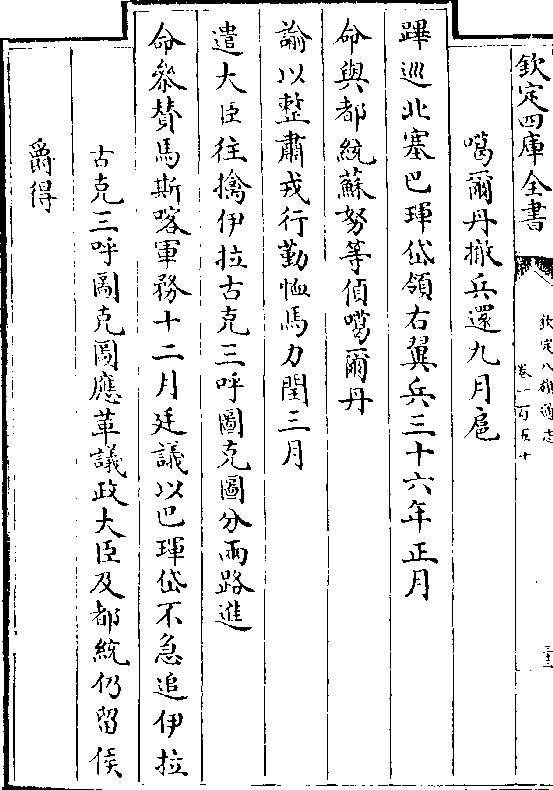 欽定四庫全書
欽定八旗通志
卷一百五十
三十三
噶爾丹撤兵還九月扈
蹕巡北塞巴琿岱領右翼兵三十六年正月
命與都統蘇努等偵噶爾丹
諭以整肅戎行勤恤馬力閏三月
遣大臣往擒伊拉古克三呼圖克圖分兩路進
命叅贊馬斯喀軍務十二月廷議以巴琿岱不急追伊拉
古克三呼圖克圖應革議政大臣及都統仍留侯
爵得